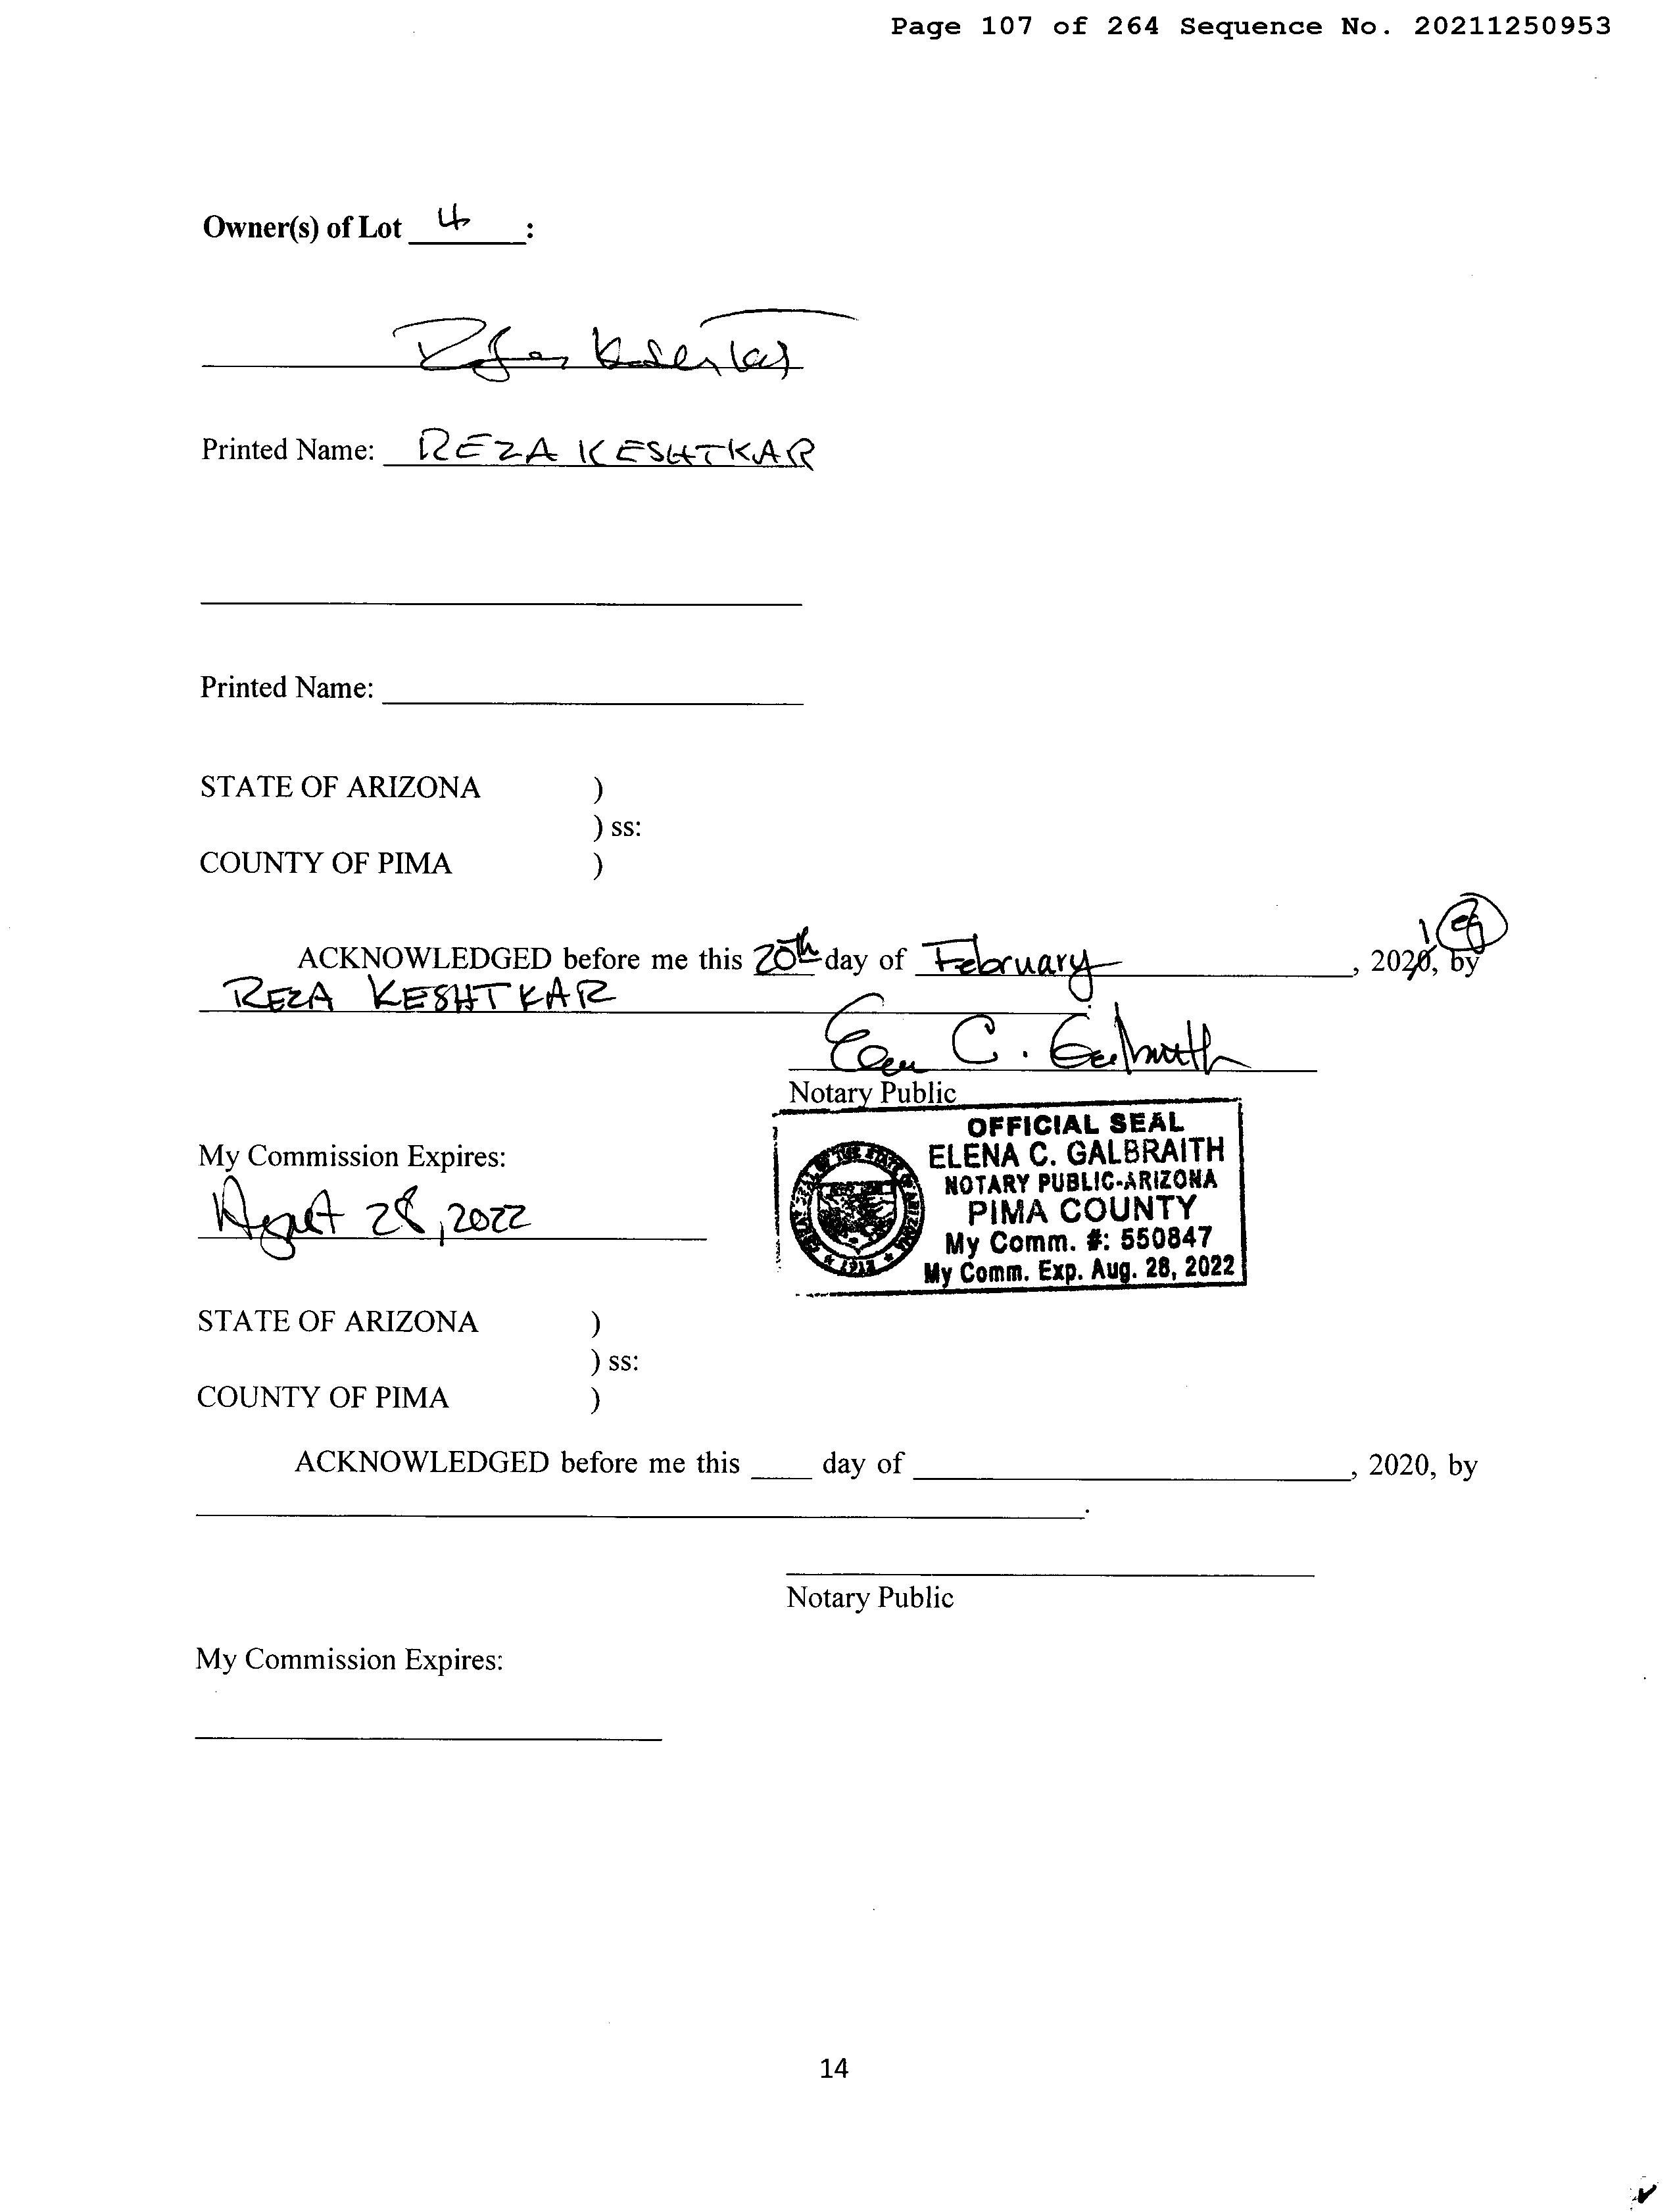 Page 107 of 264 Sequence No. 20211250953
Owner(s) of Lot 4 :
Printed Name: REZA KESHTKAR
Printed Name:
STATE OF ARIZONA )
) ss:
COUNTY OF PIMA )
ACKNOWLEDGED before me this 20th day of February, 2021, by
REZA KESHTKAR
Elena C. Galbraith
Notary Public
OFFICIAL SEAL
ELENA C. GALBRAITH
NOTARY PUBLIC-ARIZONA
PIMA COUNTY
My Comm. #: 550847
My Comm. Exp. Aug. 28, 2022
My Commission Expires:
August 28, 2022
STATE OF ARIZONA )
) ss:
COUNTY OF PIMA )
ACKNOWLEDGED before me this ____ day of ____, 2020, by
.
Notary Public
My Commission Expires:
14